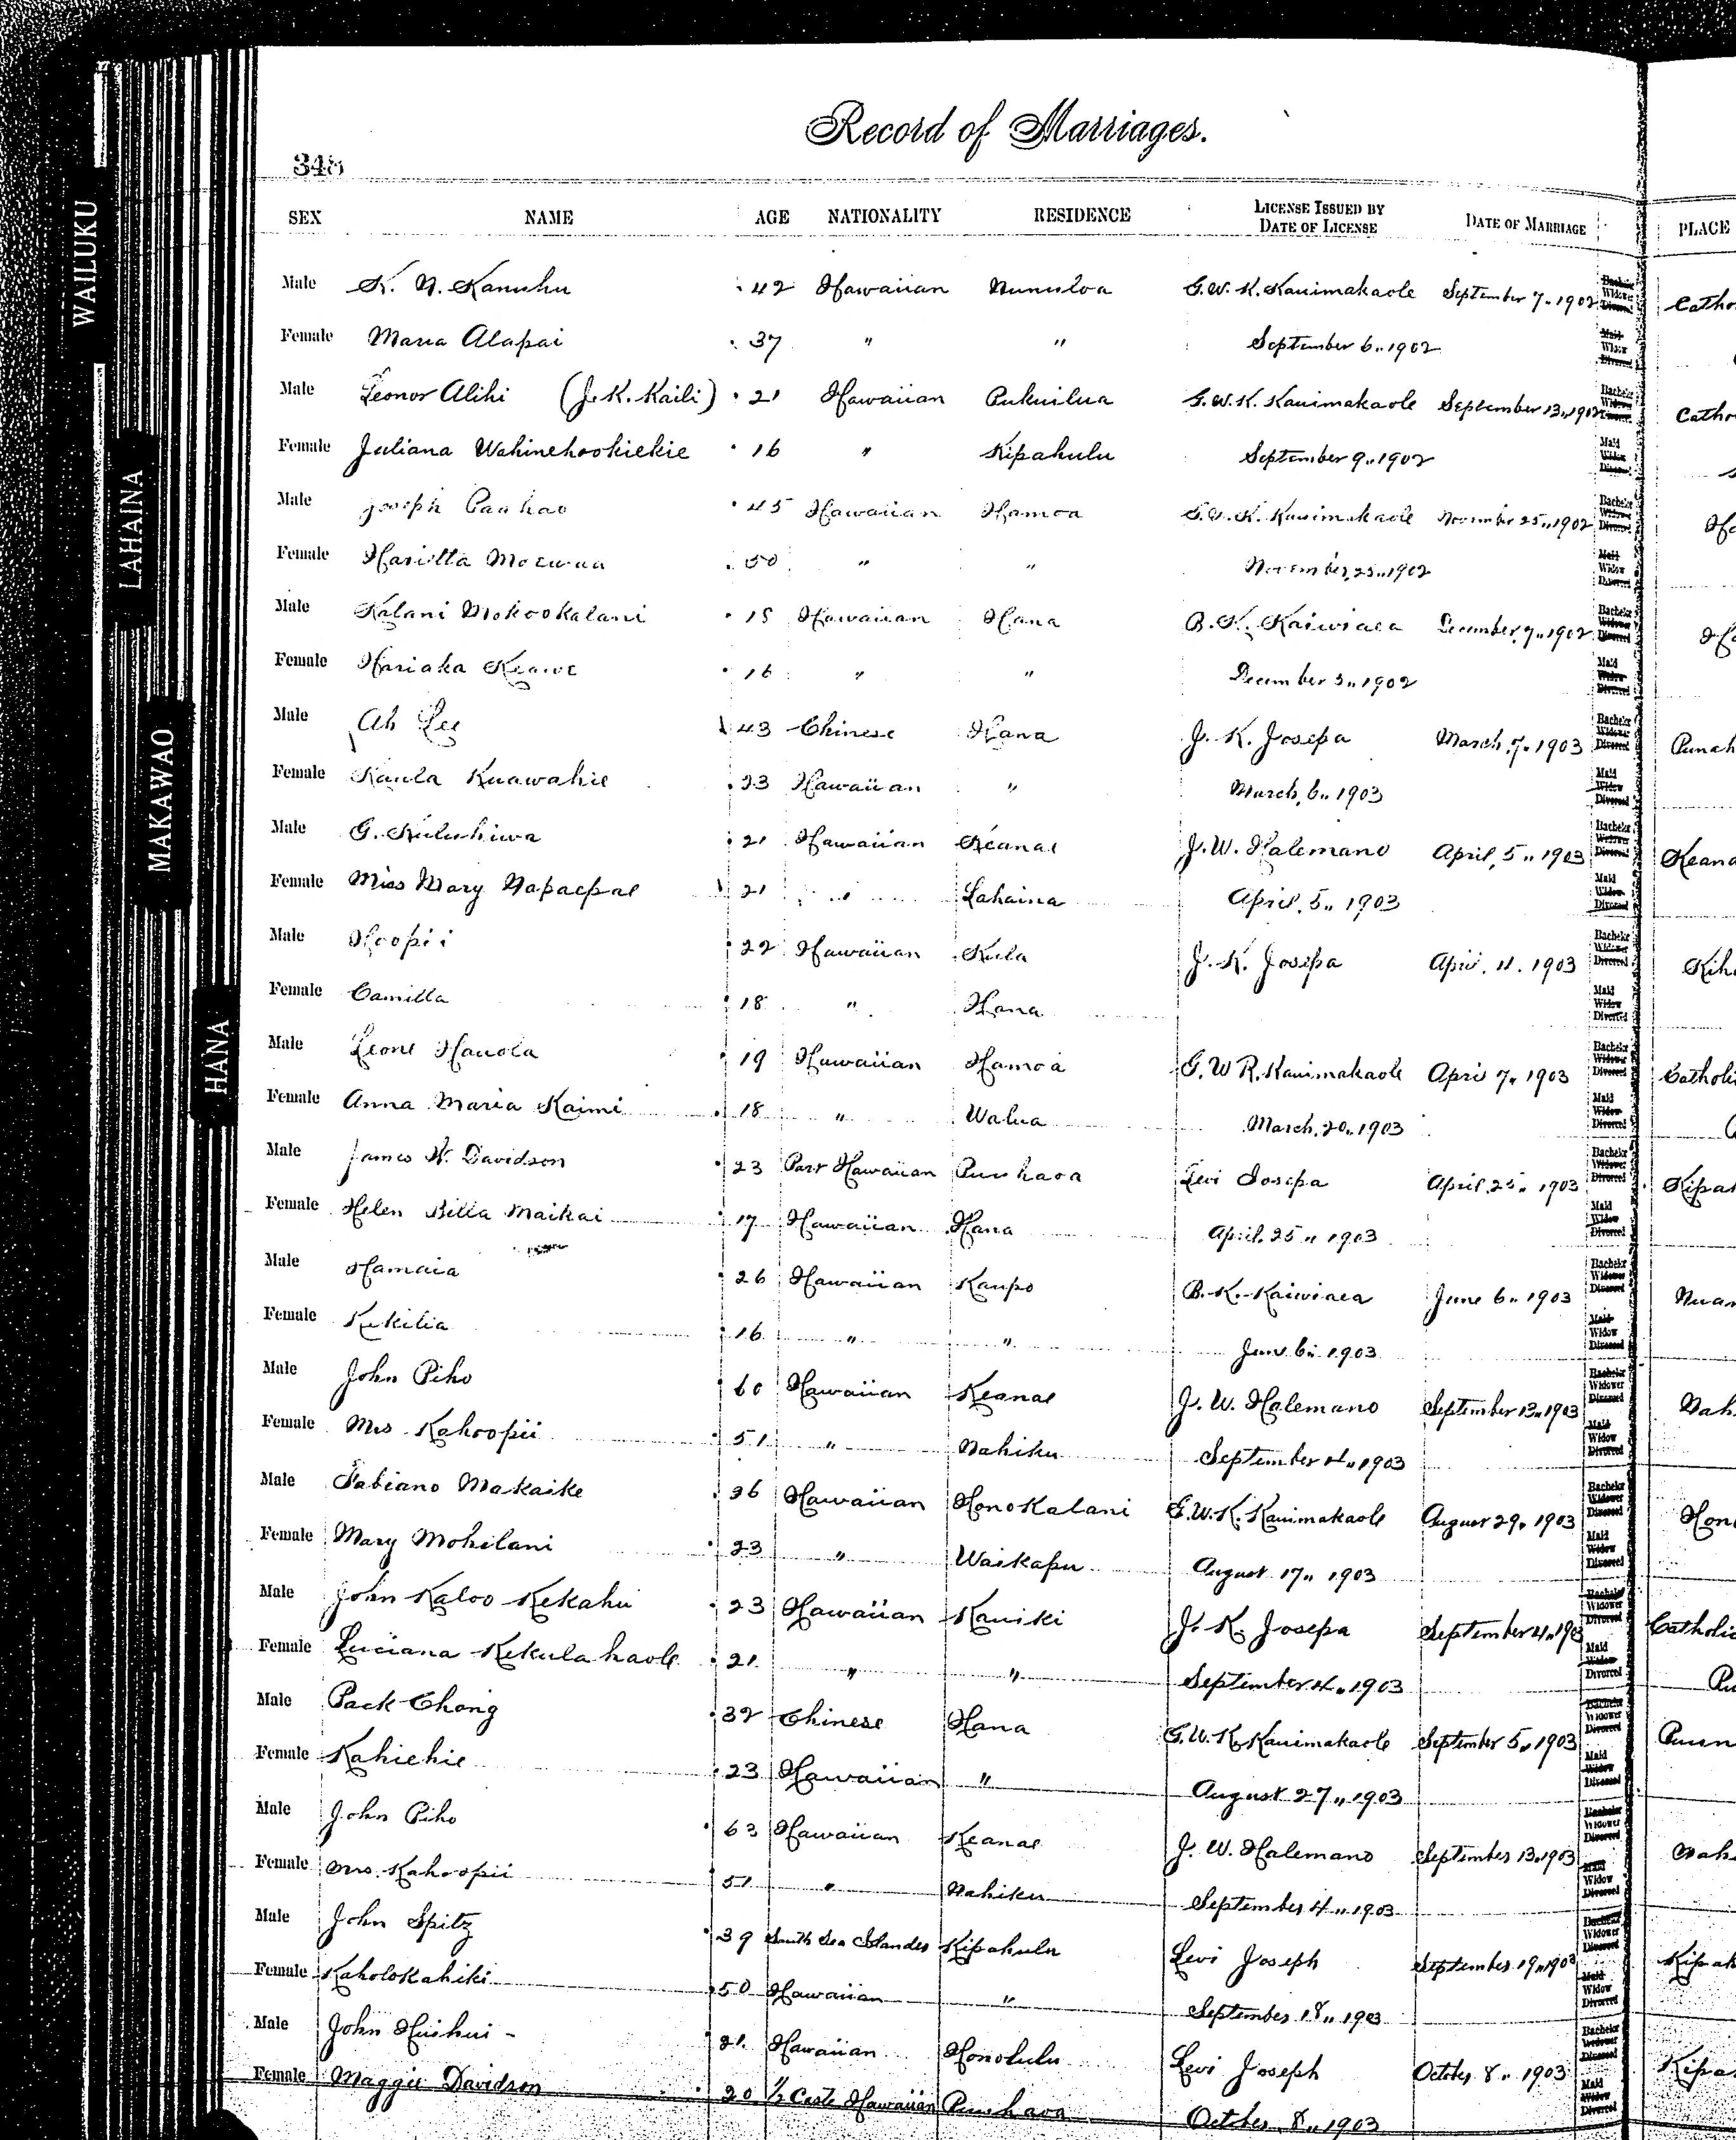 Record of Marriages.
348
SEX NAME AGE NATIONALITY RESIDENCE LICENSE ISSUED BY DATE OF LICENSE DATE OF MARRIAGE PLACE
WAILUKU
LAHAINA
MAKAWAO
HANA
Male K. N. Kanuhu 42 Hawaiian Mumuloa G.W.K. Kauimakaole September 7 „ 1902 Bachelor Widower Divorced Catho
Female Maria Alapai 37 " " September 6 „ 1902 Maid Widow Divorced
Male Leonor Alihi (J.K. Kaili) 21 Hawaiian Pukuilua G.W.K. Kauimakaole September 13 „ 1902 Bachelor Widower Divorced Catho
Female Juliana Wahinehookiekie 16 " Kipahulu September 9 „ 1902 Maid Widow Divorced
Male Joseph Paahao 45 Hawaiian Hamoa G.W.K. Kauimakaole November 25 „ 1902 Bachelor Widower Divorced Ha
Female Harietta 50 " " November 25 „ 1902 Maid Widow Divorced
Male Kalani Mokookalani 18 Hawaiian Hana B.K. Kaiwiaea December 7 „ 1902 Bachelor Widower Divorced Ha
Female Hariaka Keawe 16 " " December 3 „ 1902 Maid Widow Divorced
Male Ah Lee 43 Chinese Hana J. K. Josepa March 7 „ 1903 Bachelor Widower Divorced Punah
Female Kaula Kuawahie 23 Hawaiian " March, 6 „ 1903 Maid Widow Divorced
Male G. Kuluhiwa 21 Hawaiian Keanae J. W. Halemano April, 5 „ 1903 Bachelor Widower Divorced Keana
Female Miss Mary Napaepae 21 " Lahaina April, 5 „ 1903 Maid Widow Divorced
Male Hoopii 22 Hawaiian Kula J. K. Josepa April 11. 1903 Bachelor Widower Divorced Kih
Female Camilla 18 " Hana Maid Widow Divorced
Male Leone Hauola 19 Hawaiian Hamoa G. W K. Kauimakaole April 7 „ 1903 Bachelor Widower Divorced Catholi
Female Anna Maria Kaimi 18 " Walua March, 20 „ 1903 Maid Widow Divorced
Male James K. Davidson 23 Part Hawaiian Puuhaoa Levi Josepa April 25 „ 1903 Bachelor Widower Divorced Kipah
Female Helen Bella Maikai 17 Hawaiian Hana April. 25 „ 1903 Maid Widow Divorced
Male Hamaia 26 Hawaiian Kaupo B. K. Kaiwiaea June 6 „ 1903 Bachelor Widower Divorced Nuan
Female Kekilia 16 " " June 6 „ 1903 Maid Widow Divorced
Male John Piho 60 Hawaiian Keanae J. W. Halemano September 13 „ 1903 Bachelor Widower Divorced Nah
Female Mrs Kahoopii 51 " Nahiku September 4 „ 1903 Maid Widow Divorced
Male Fabiano Makaike 36 Hawaiian Honokalani G.W.K. Kauimakaole August 29 „ 1903 Bachelor Widower Divorced Hon
Female Mary Mohilani 23 " Waikapu August 17 „ 1903 Maid Widow Divorced
Male John Kaloo Kekahu 23 Hawaiian Kauiki J. K. Josepa September 4 „ 1903 Bachelor Widower Divorced Catholic
Female Luciana Kekulahaole 21 " " September 4 „ 1903 Maid Widow Divorced Pu
Male Pack Chong 32 Chinese Hana G.W.K. Kauimakaole September 5 „ 1903 Bachelor Widower Divorced Puun
Female Kahiehie 23 Hawaiian " August 27 „ 1903 Maid Widow Divorced
Male John Piho 63 Hawaiian Keanae J. W. Halemano September 13 „ 1903 Bachelor Widower Divorced Nah
Female Mrs. Kahoopii 51 " Nahiku September 4 „ 1903 Maid Widow Divorced
Male John Spitz 39 South Sea Islander Kipahulu Levi Joseph September 19 „ 1903 Bachelor Widower Divorced Kipah
Female Kaholokahiki 50 Hawaiian " September 18 „ 1903 Maid Widow Divorced
Male John Huihui - 21 Hawaiian Honolulu Levi Joseph October 8 „ 1903 Bachelor Widower Divorced Kipa
Female Maggie Davidson 20 1/2 Caste Hawaiian Puuhaoa October 8 „ 1903 Maid Widow Divorced